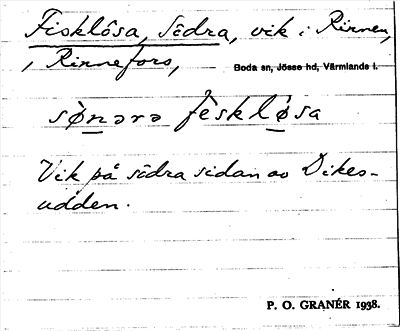 Fisklösa, Södra, vik i Rinnen,
i Rinnefors, Boda sn, Jösse hd, Värmlands l.
sø̀nərə fèsklø̀sa
Vik på södra sidan av Dikes-
udden.
P. O. GRANÉR 1938.